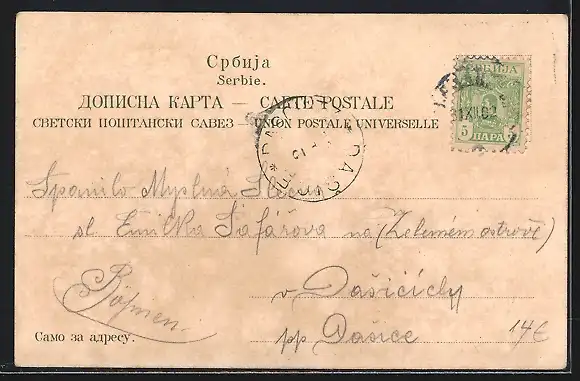 Србија
Serbie.
ДОПИСНА КАРТА — CARTE POSTALE
СВЕТСКИ ПОШТАНСКИ САВЕЗ — UNION POSTALE UNIVERSELLE
СРБИЈА
5 ПАРА
DAŠ
Spanilo Myslná Slečna
sl. Emilka Šafářova na (Zeleném ostrově)
v Dašicích
Böhmen
pp Dašice
14E
Само за адресу.